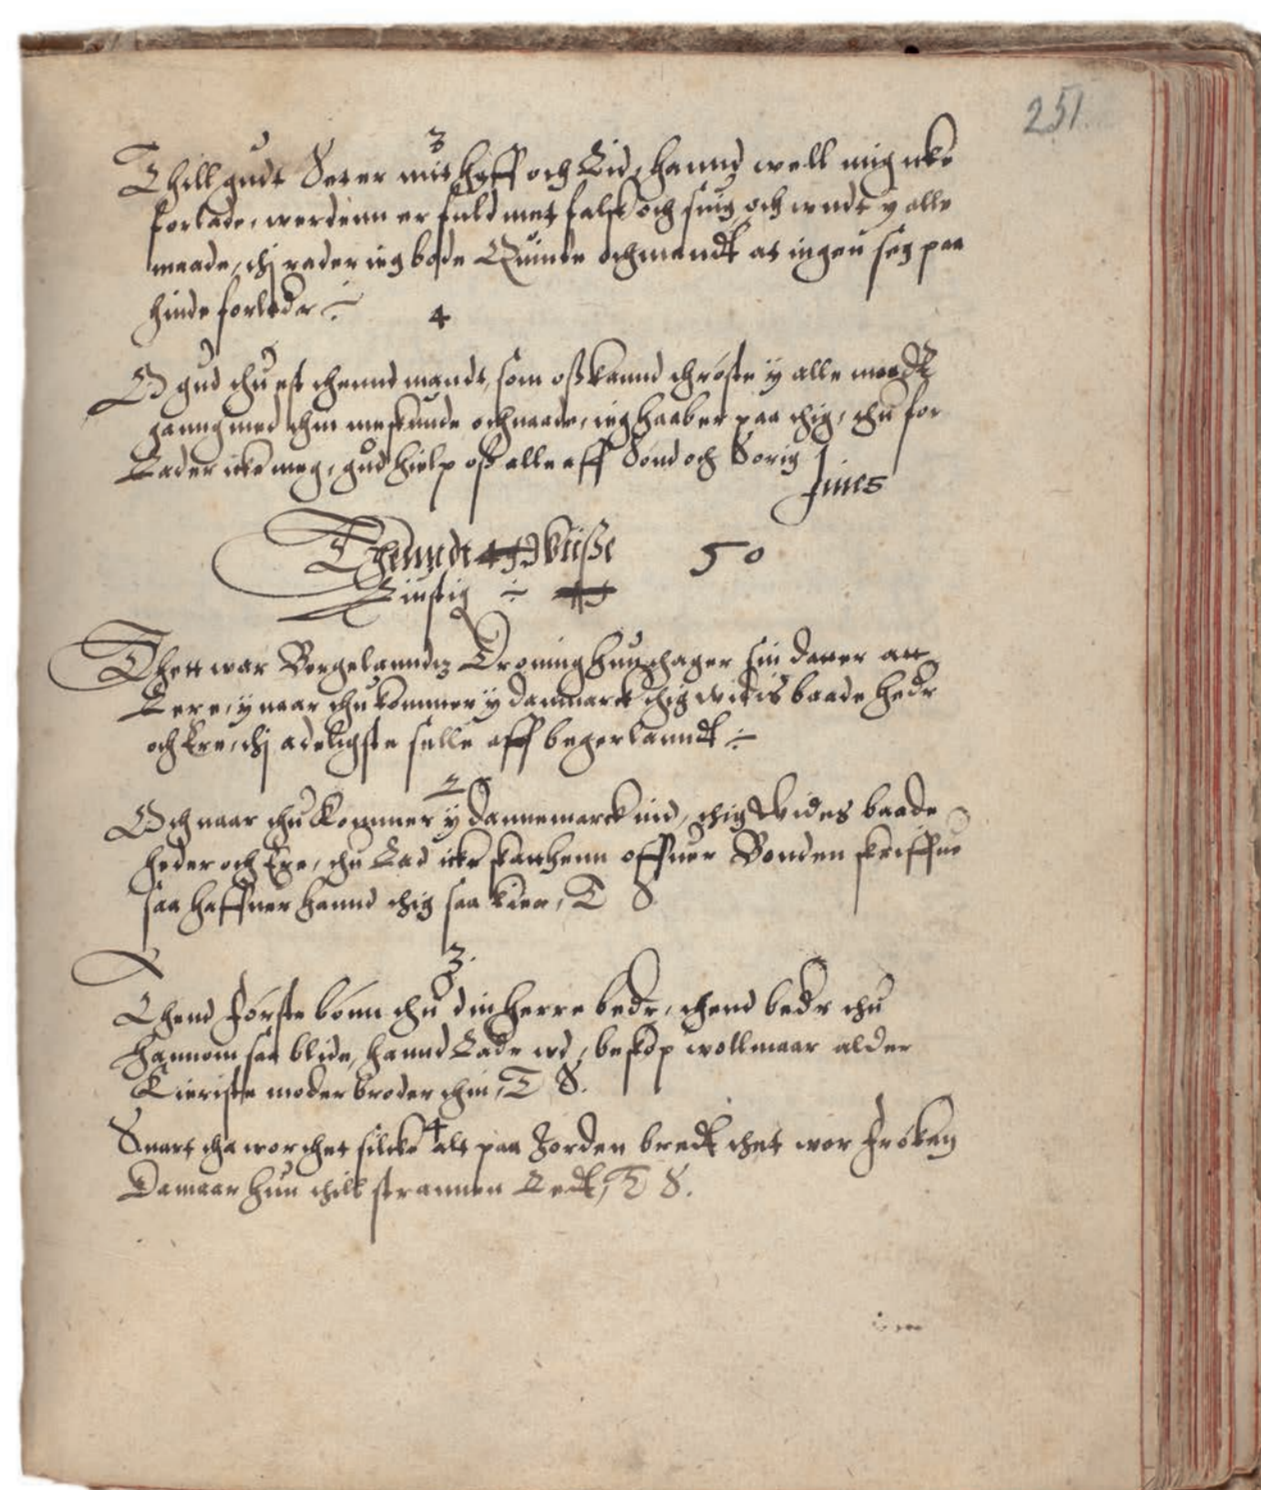 251.
3
Thill gudt Seter mit haff och Lid, hannd well mig icke
forlade, werdenn er fuld met falsk och suig och wndt y alle
maade, thj rader ieg bode Quinde och mandt at ingen seg paa
hinde forlader ÷
4
O gud thu est thennd mandt, som oß kannd thrøste y alle maade
ganng med thin meskunde och naade, ieg haaber paa thig, thu for
Lader icke meg, gud hielp oß alle aff Sond och Sorig
fines
Thenndt wiiße 50
Liustig ÷
Thett war Bergelanndz Droning hun thager sin daater att
Lere, y naar thu kommer y danmarck thig widis baade hedr
och Ere, thj adeligste fulle aff begerlanndt ÷
2
Och naar thu Kommer y dannemarck ind, thig Wides baade
heder och Ere, thu Lad icke skathenn offuer Bonden skriffue
saa haffuer hannd thig saa kier, T S
3.
Thend første bønn thu din herre beder, thend beder thu
hannom saa blide, hannd Lade wd, beskop wollmaar alder
Kieriste moderbroder thin, T S.
4
Snart tha wor thet silcke alt paa Jorden bredt thet wor frøken
Damaar hun thill strannen Ledt, T S.